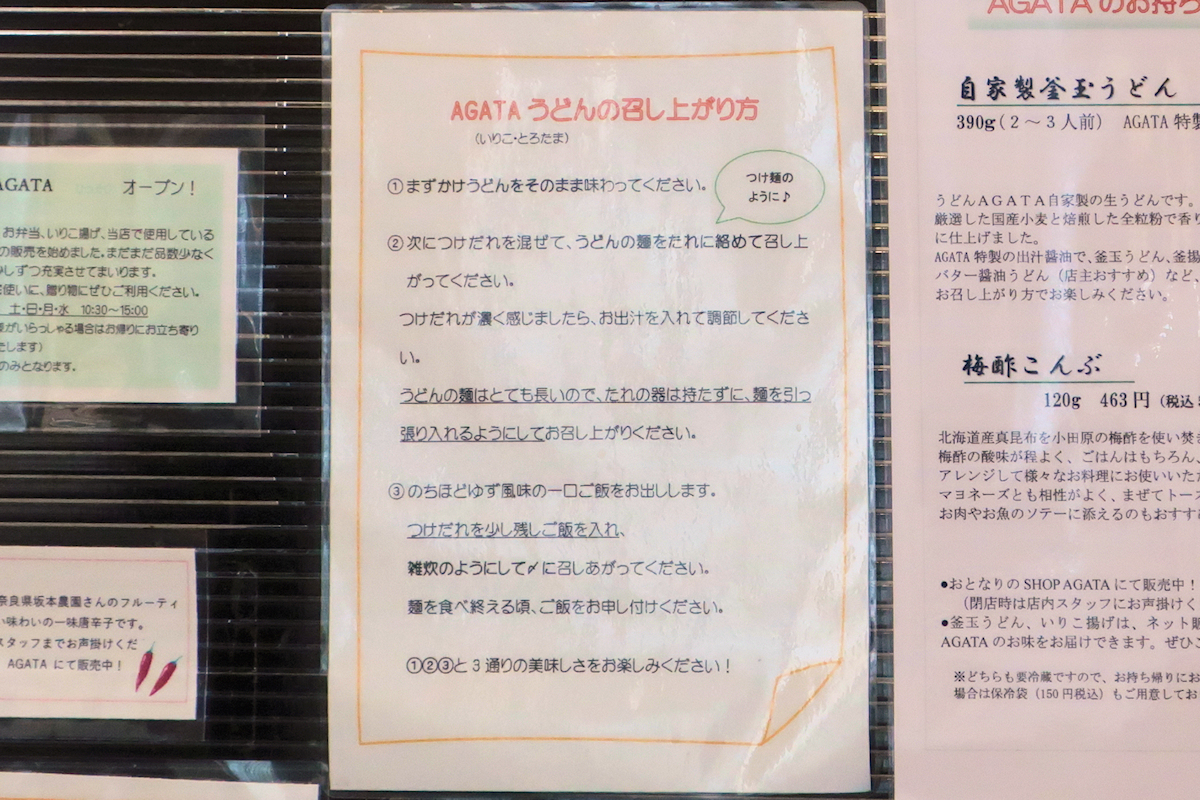 AGATA オープン！
お弁当、いりこ揚げ、当店で使用している
の販売を始めました。まだまだ品数少なく
少しずつ充実させてまいります。
使いに、贈り物にぜひご利用ください。
土・日・月・水 10:30～15:00
がいらっしゃる場合はお帰りにお立ち寄り
たします）
のみとなります。
奈良県坂本農園さんのフルーティ
い味わいの一味唐辛子です。
スタッフまでお声掛けくだ
AGATA にて販売中！
AGATA うどんの召し上がり方
（いりこ・とろたま）
①まずかけうどんをそのまま味わってください。
つけ麺の
ように♪
②次につけだれを混ぜて、うどんの麺をたれに絡めて召し上
がってください。
つけだれが濃く感じましたら、お出汁を入れて調節してくださ
い。
うどんの麺はとても長いので、たれの器は持たずに、麺を引っ
張り入れるようにしてお召し上がりください。
③のちほどゆず風味の一口ご飯をお出しします。
つけだれを少し残しご飯を入れ、
雑炊のようにして〆に召しあがってください。
麺を食べ終える頃、ご飯をお申し付けください。
①②③と３通りの美味しさをお楽しみください！
AGATA のお持ち
自家製釜玉うどん
390g（２～３人前） AGATA 特製
うどんＡＧＡＴＡ自家製の生うどんです。
厳選した国産小麦と焙煎した全粒粉で香り
に仕上げました。
AGATA 特製の出汁醤油で、釜玉うどん、釜揚
バター醤油うどん（店主おすすめ）など、
お召し上がり方でお楽しみください。
梅酢こんぶ
120g 463 円（税込
北海道産真昆布を小田原の梅酢を使い焚き
梅酢の酸味が程よく、ごはんはもちろん、
アレンジして様々なお料理にお使いいただ
マヨネーズとも相性がよく、まぜてトース
お肉やお魚のソテーに添えるのもおすすめ
●おとなりの SHOP AGATA にて販売中！
（閉店時は店内スタッフにお声掛けく
●釜玉うどん、いりこ揚げは、ネット販
AGATA のお味をお届けできます。ぜひご
※どちらも要冷蔵ですので、お持ち帰りにお
場合は保冷袋（150 円税込）もご用意してお